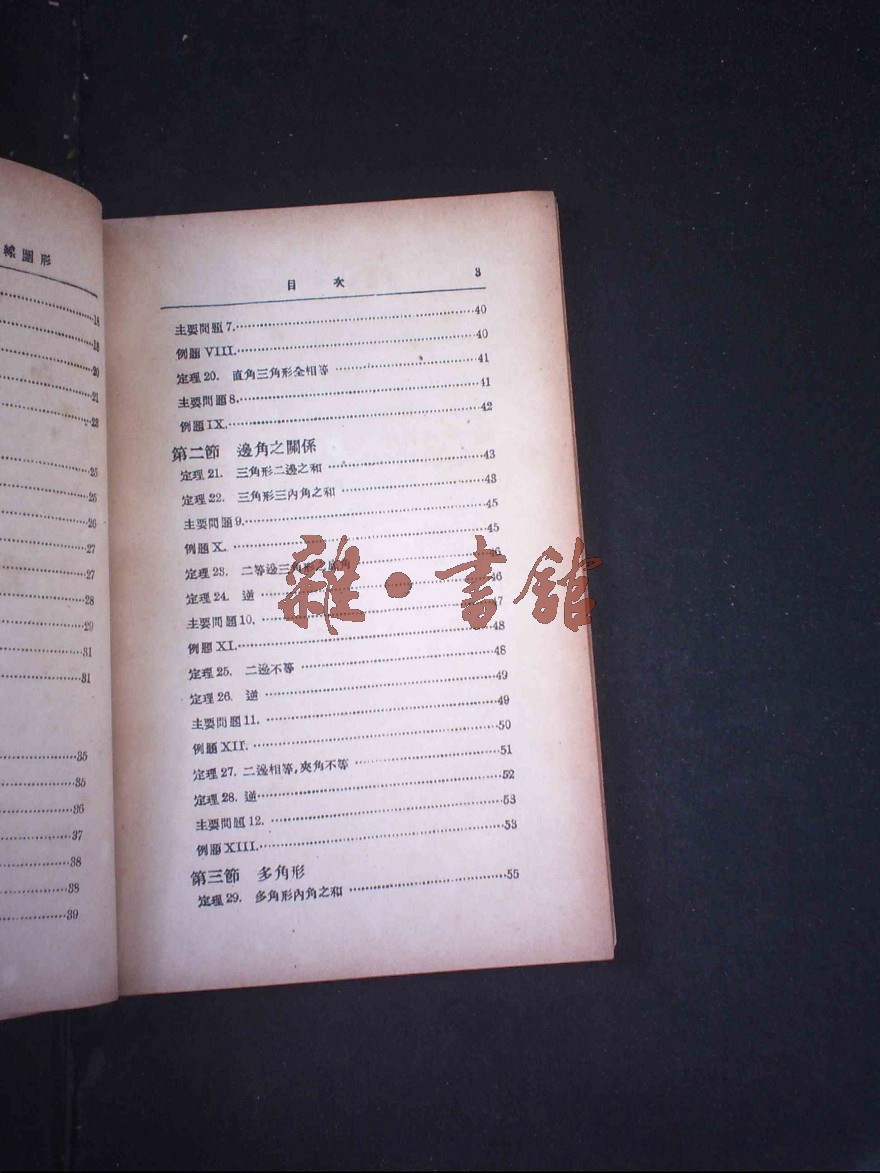 線圖形
18
19
20
21
23
25
25
26
27
27
28
29
31
31
35
35
36
37
38
38
39
目 次 3
主要問題7. 40
例題VIII. 40
定理20. 直角三角形全相等 41
主要問題8. 41
例題IX. 42
第二節 邊角之關係
定理21. 三角形二邊之和 43
定理22. 三角形三內角之和 43
主要問題9. 45
例題X. 45
定理23. 二等邊三角形之底角 46
定理24. 逆 46
主要問題10. 47
例題XI. 48
定理25. 二邊不等 48
定理26. 逆 49
主要問題11. 49
例題XII. 50
定理27. 二邊相等,夾角不等 51
定理28. 逆 52
主要問題12. 53
例題XIII. 53
第三節 多角形
定理29. 多角形內角之和 55
雜·書館